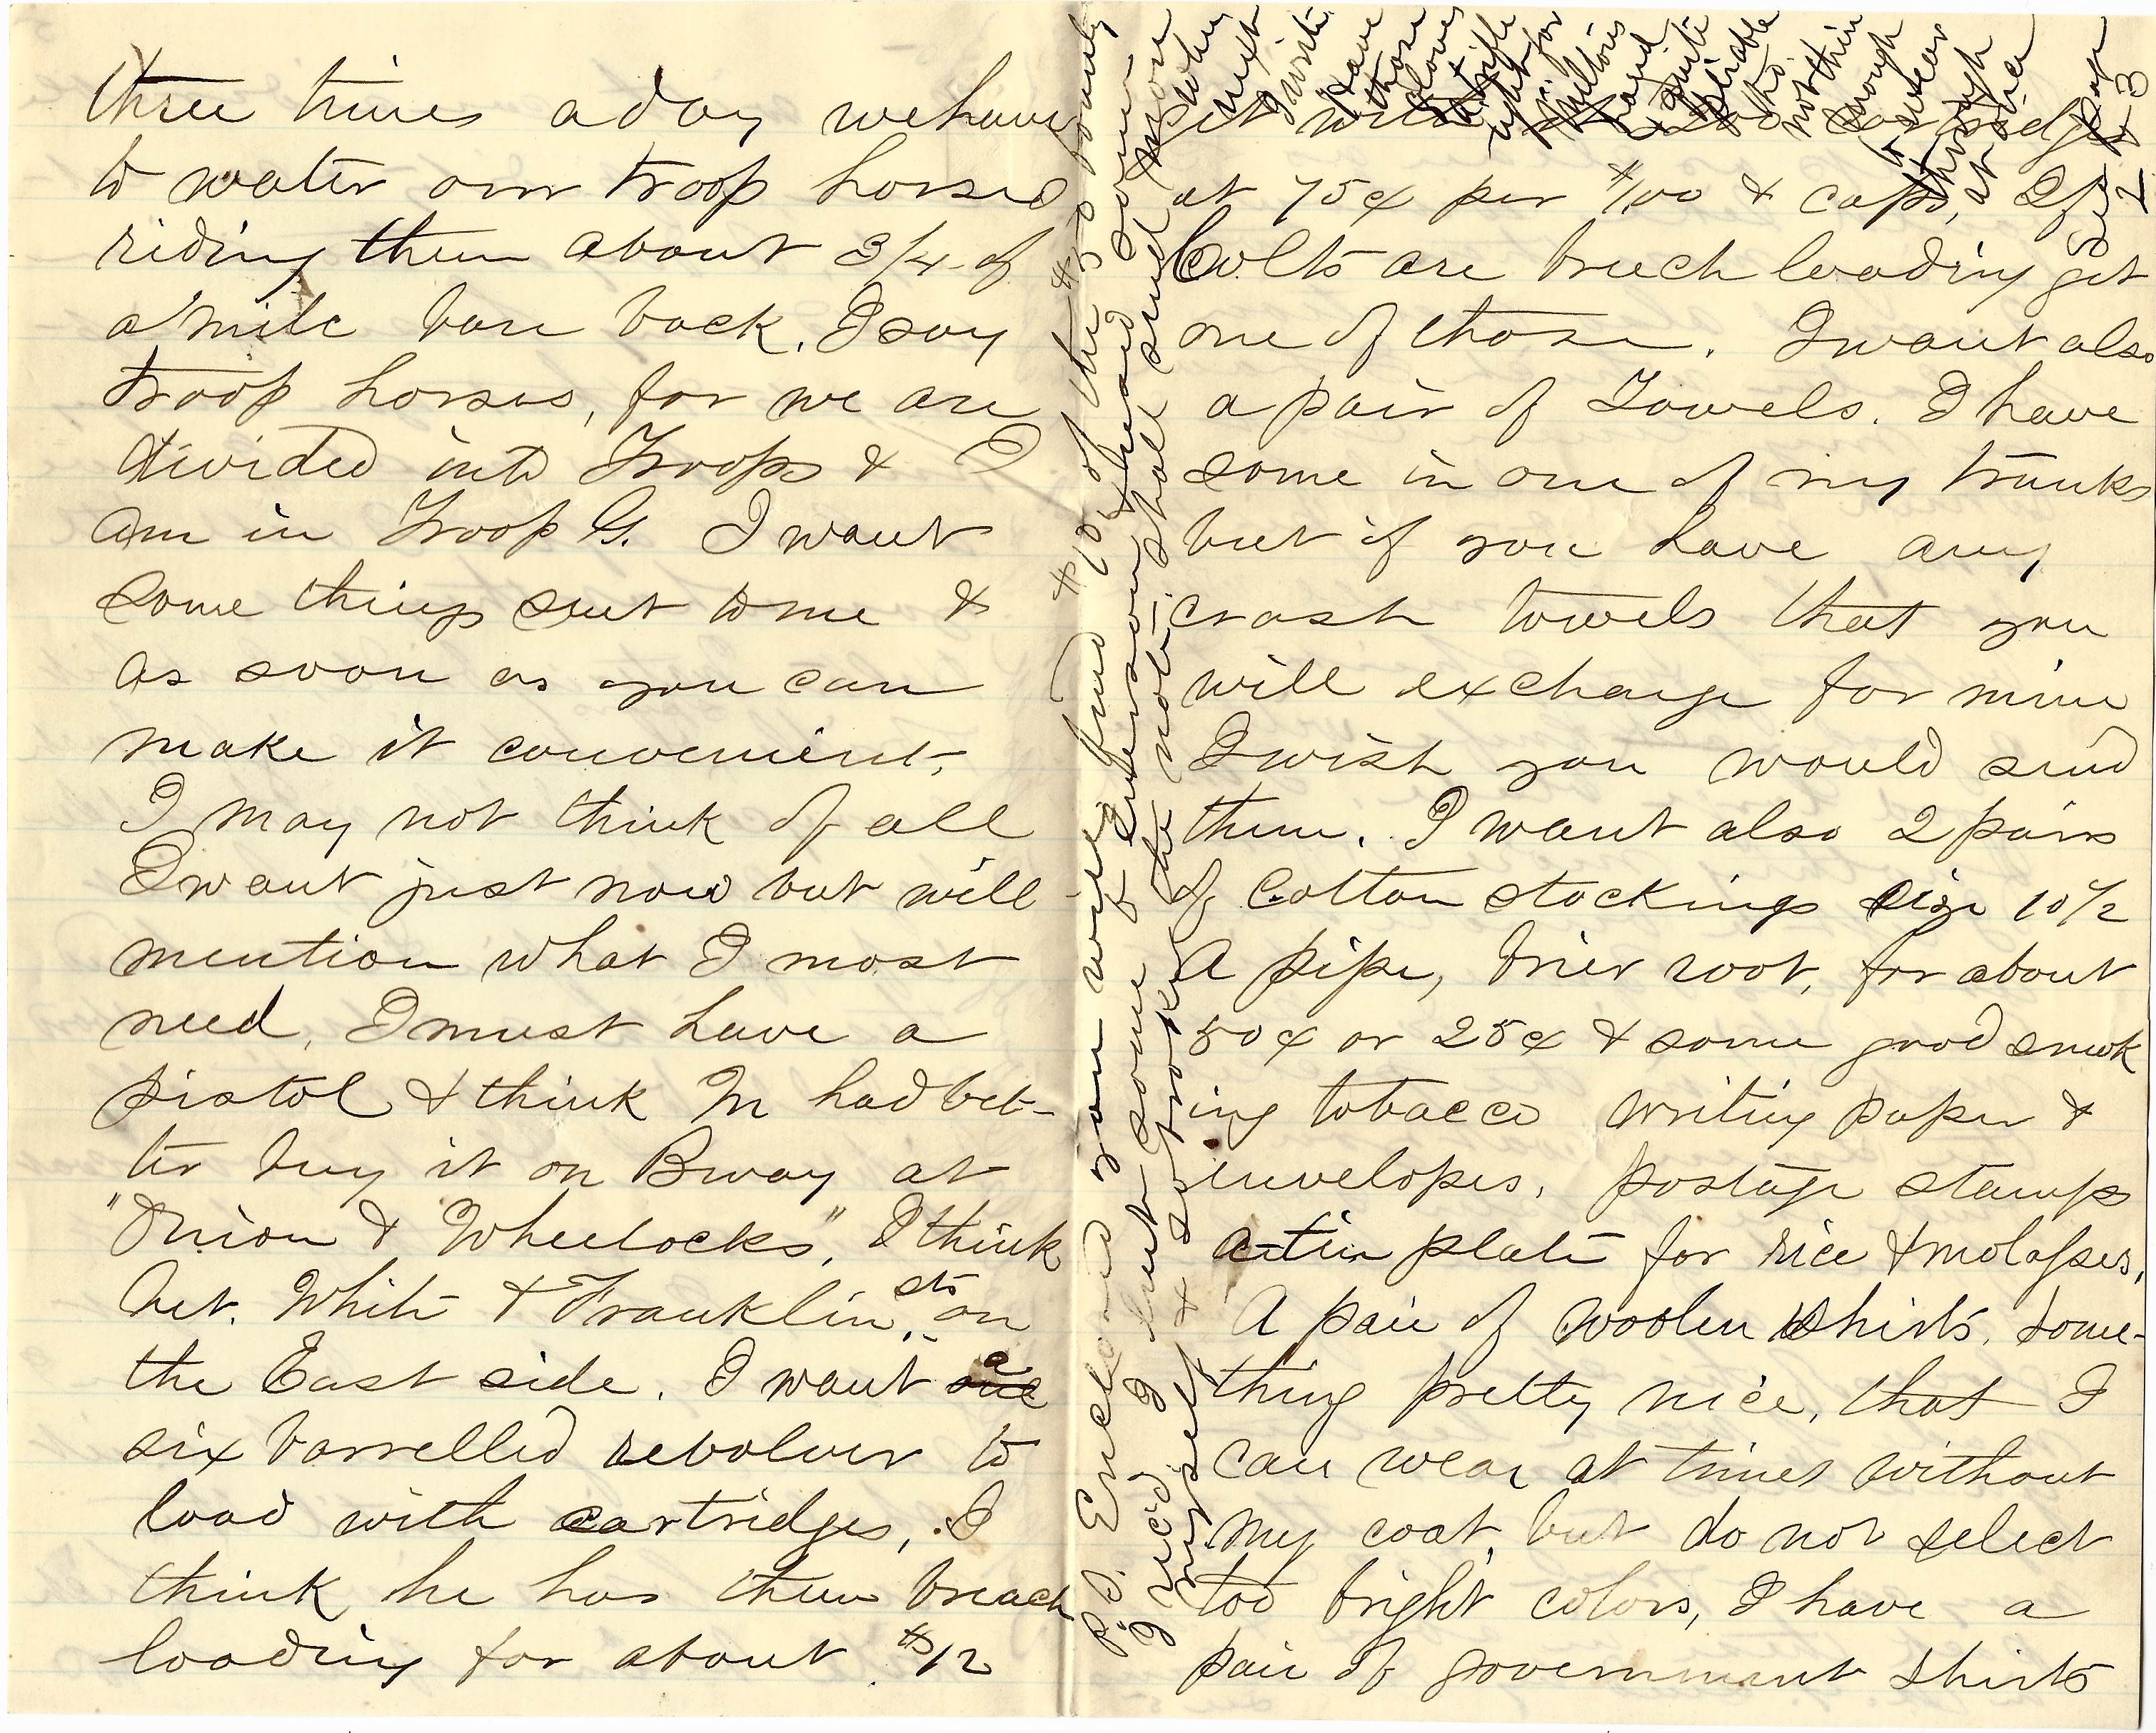 three times a day we have
to water our troop horses
riding them about 3/4 of
a mile bare back. I say
troop horses, for we are
divided into Troops & I
am in Troop G. I want
some things sent to me &
as soon as you can
make it convenient.
I may not think of all
I want just now but will
mention what I most
need. I must have a
pistol & think M had bet-
ter buy it on Bway at
"Onion & Wheelocks", I think
bet. White & Franklin sts on
the East side. I want a
six barrelled revolver to
load with cartridges, I
think he has them breach
loading for about $12
it will
at 75¢ per 100 & caps, If
Colts are breech loading get
one of those. I want also
a pair of Towels. I have
some in one of my trunks
but if you have any
crash towels that you
will exchange for mine
I wish you would send
them. I want also 2 pairs
of Cotton stockings size 10 1/2
A pipe, brier root, for about
50¢ or 25¢ & some good smok
ing tobacco writing paper &
envelopes, postage stamps
a tin plate for rice & molasses,
A pair of woolen shirts, some-
thing pretty nice, that I
can wear at times without
my coat, but do not select
too bright colors, I have a
pair of government shirts
P.S. Enclosed you will find $10, of the $50 bounty
I rec'd I lent some of Enderson & hused some
myself & so broke the note. I shall send more
when
next
I write
Have
those
gloves
a trifle
right for
Milton's
hand
& quite
durable
not thin
enough
to wear
through
at once
See page
2 & 3